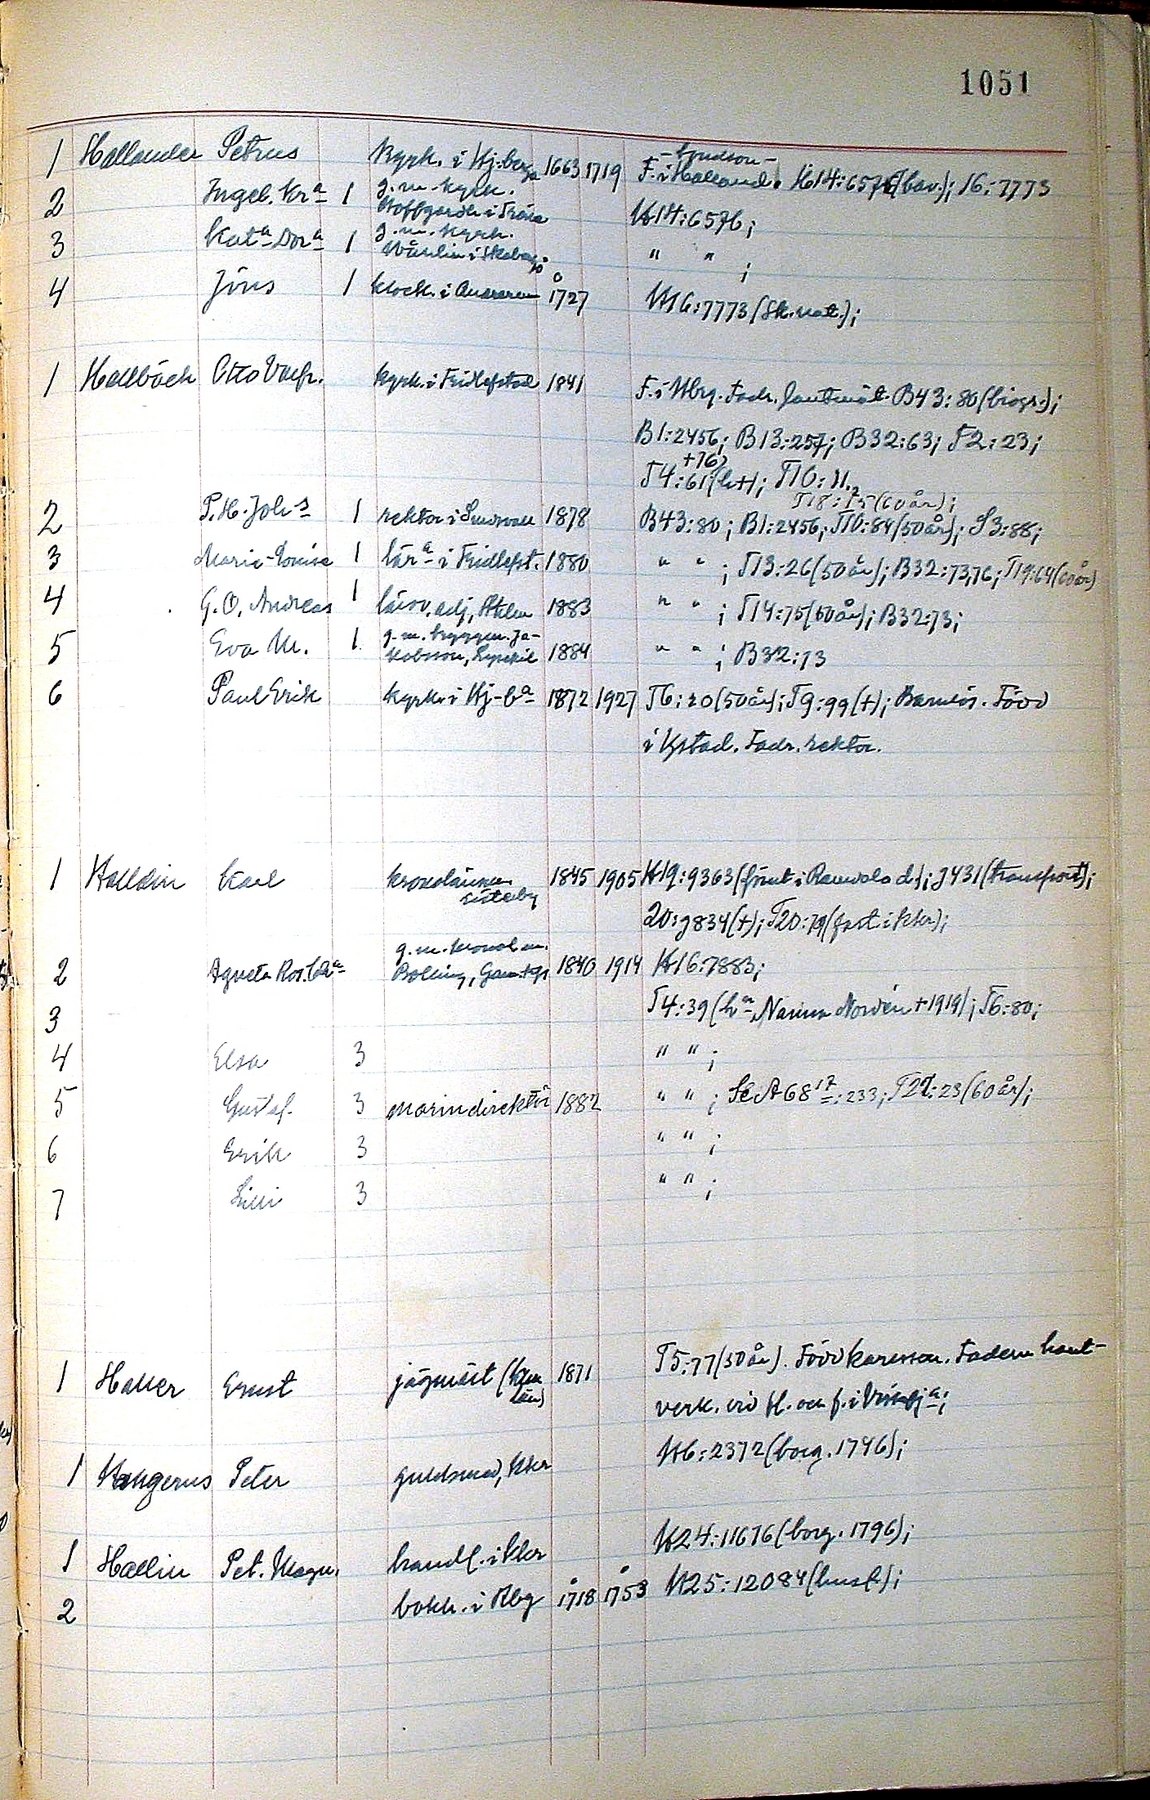 1051
1 Hallander Petrus kyrk. i Hj.berga 1663 1719 F. i Halland. K14:6576(bav.); 16:7773
2 Ingel. Kra 1 g.m. kyrk. i K14:6576;
3 Kata Dora 1 g.m. kyrk. " " ;
4 Jöns 1 klock. i 1727 K16:7773(Sk.nat.);
1 Hallbäck Otto Valfr. kyrk. i Fridlefstad 1841 F. i Hbg. Fadr. lantmät. B43:80(biogr.);
B1:2456; B13:257; B32:63; T2:23;
+76)
T4:61(h+); T10:11.
T18:75(60 år);
2 P.H. Joh-s 1 rektor i Sundsvall 1878 B43:80; B1:2456; T10:84(50 år); S3:88;
3 Maria-Lovisa 1 lära i Fridlefst. 1880 " " ; T13:26(50 år); B32:73,76; T19:64(60 år)
4 G.O. Andreas 1 lärov.adj, Sthlm 1883 " " ; T14:75(50 år); B32:73;
5 Eva M. 1 g.m. byggm. Ja-
kobsson, Lysekil 1884 " " ; B32:73
6 Paul Erik kyrk. i Hj-ba 1872 1927 T6:20(50 år); T9:99(+); Barnlös. Född
i Ystad. Fadr. rektor.
1 Halldin Karl kronolänsm. 1845 1905 K19:9363(förut i Ramdala d.); 9431(transport);
20:9834(+); T20:79(fast. i Kkr);
2 Agneta 1840 1914 K16:7883;
3 T4:39(ha Nanna Nordén +1919); T6:80;
4 Elsa 3 " " ;
5 Gustaf. 3 marindirektör 1882 " " ; SLA68 17:233; T27:23(60 år);
6 Erik 3 " " ;
7 Lilli 3 " " ;
1 Haller Ernst jägmäst (Kra
län) 1871 T5:77(50 år). Född Karlsson. Fadern hant-
verk. vid fl. och f. i
1 Peter guldsmed, Kkr K6:2372(borg. 1746);
1 Hallin Pet. Magn. handl. i Kkr K24:11676(borg. 1796);
2 bokh. i Rby 1718 1753 K25:12084(husf.);